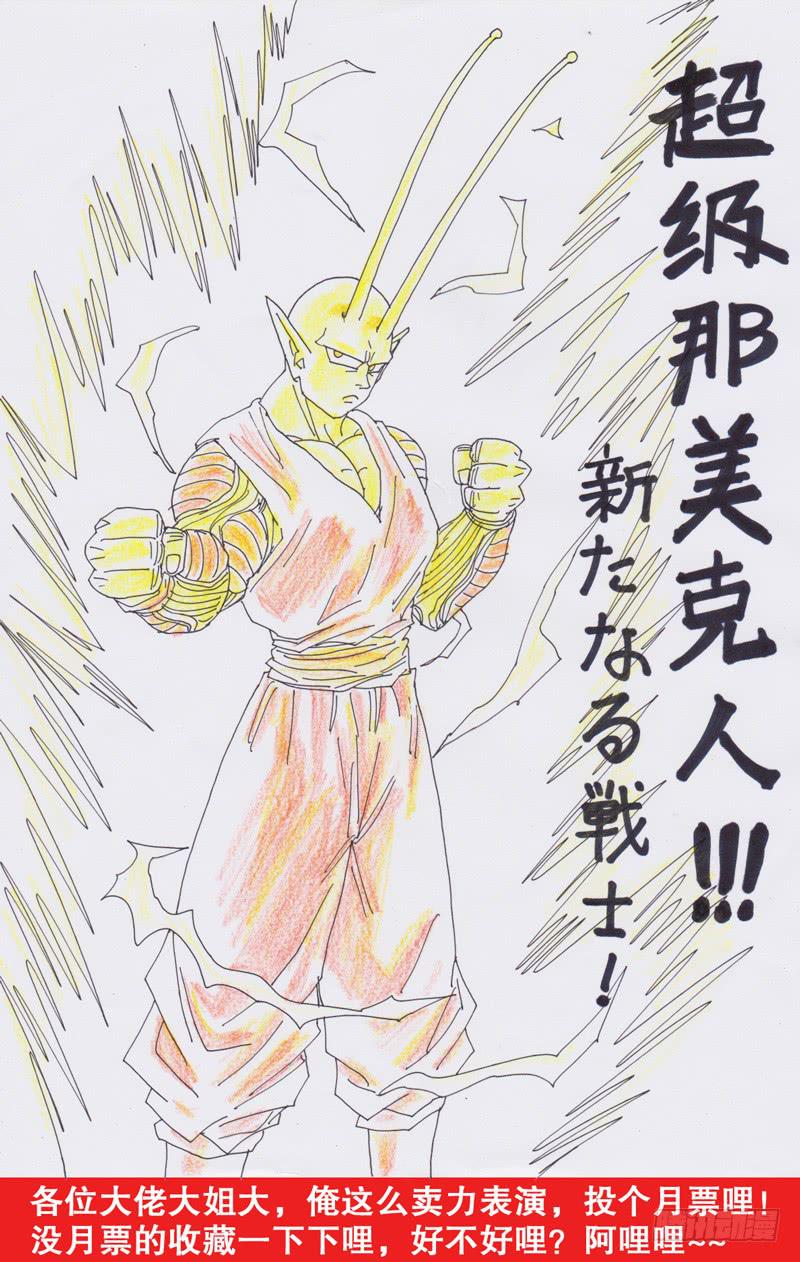 超级那美克人!!!
新たなる戦士!
各位大佬大姐大，俺这么卖力表演，投个月票哩！
没月票的收藏一下下哩，好不好哩？阿哩哩~~